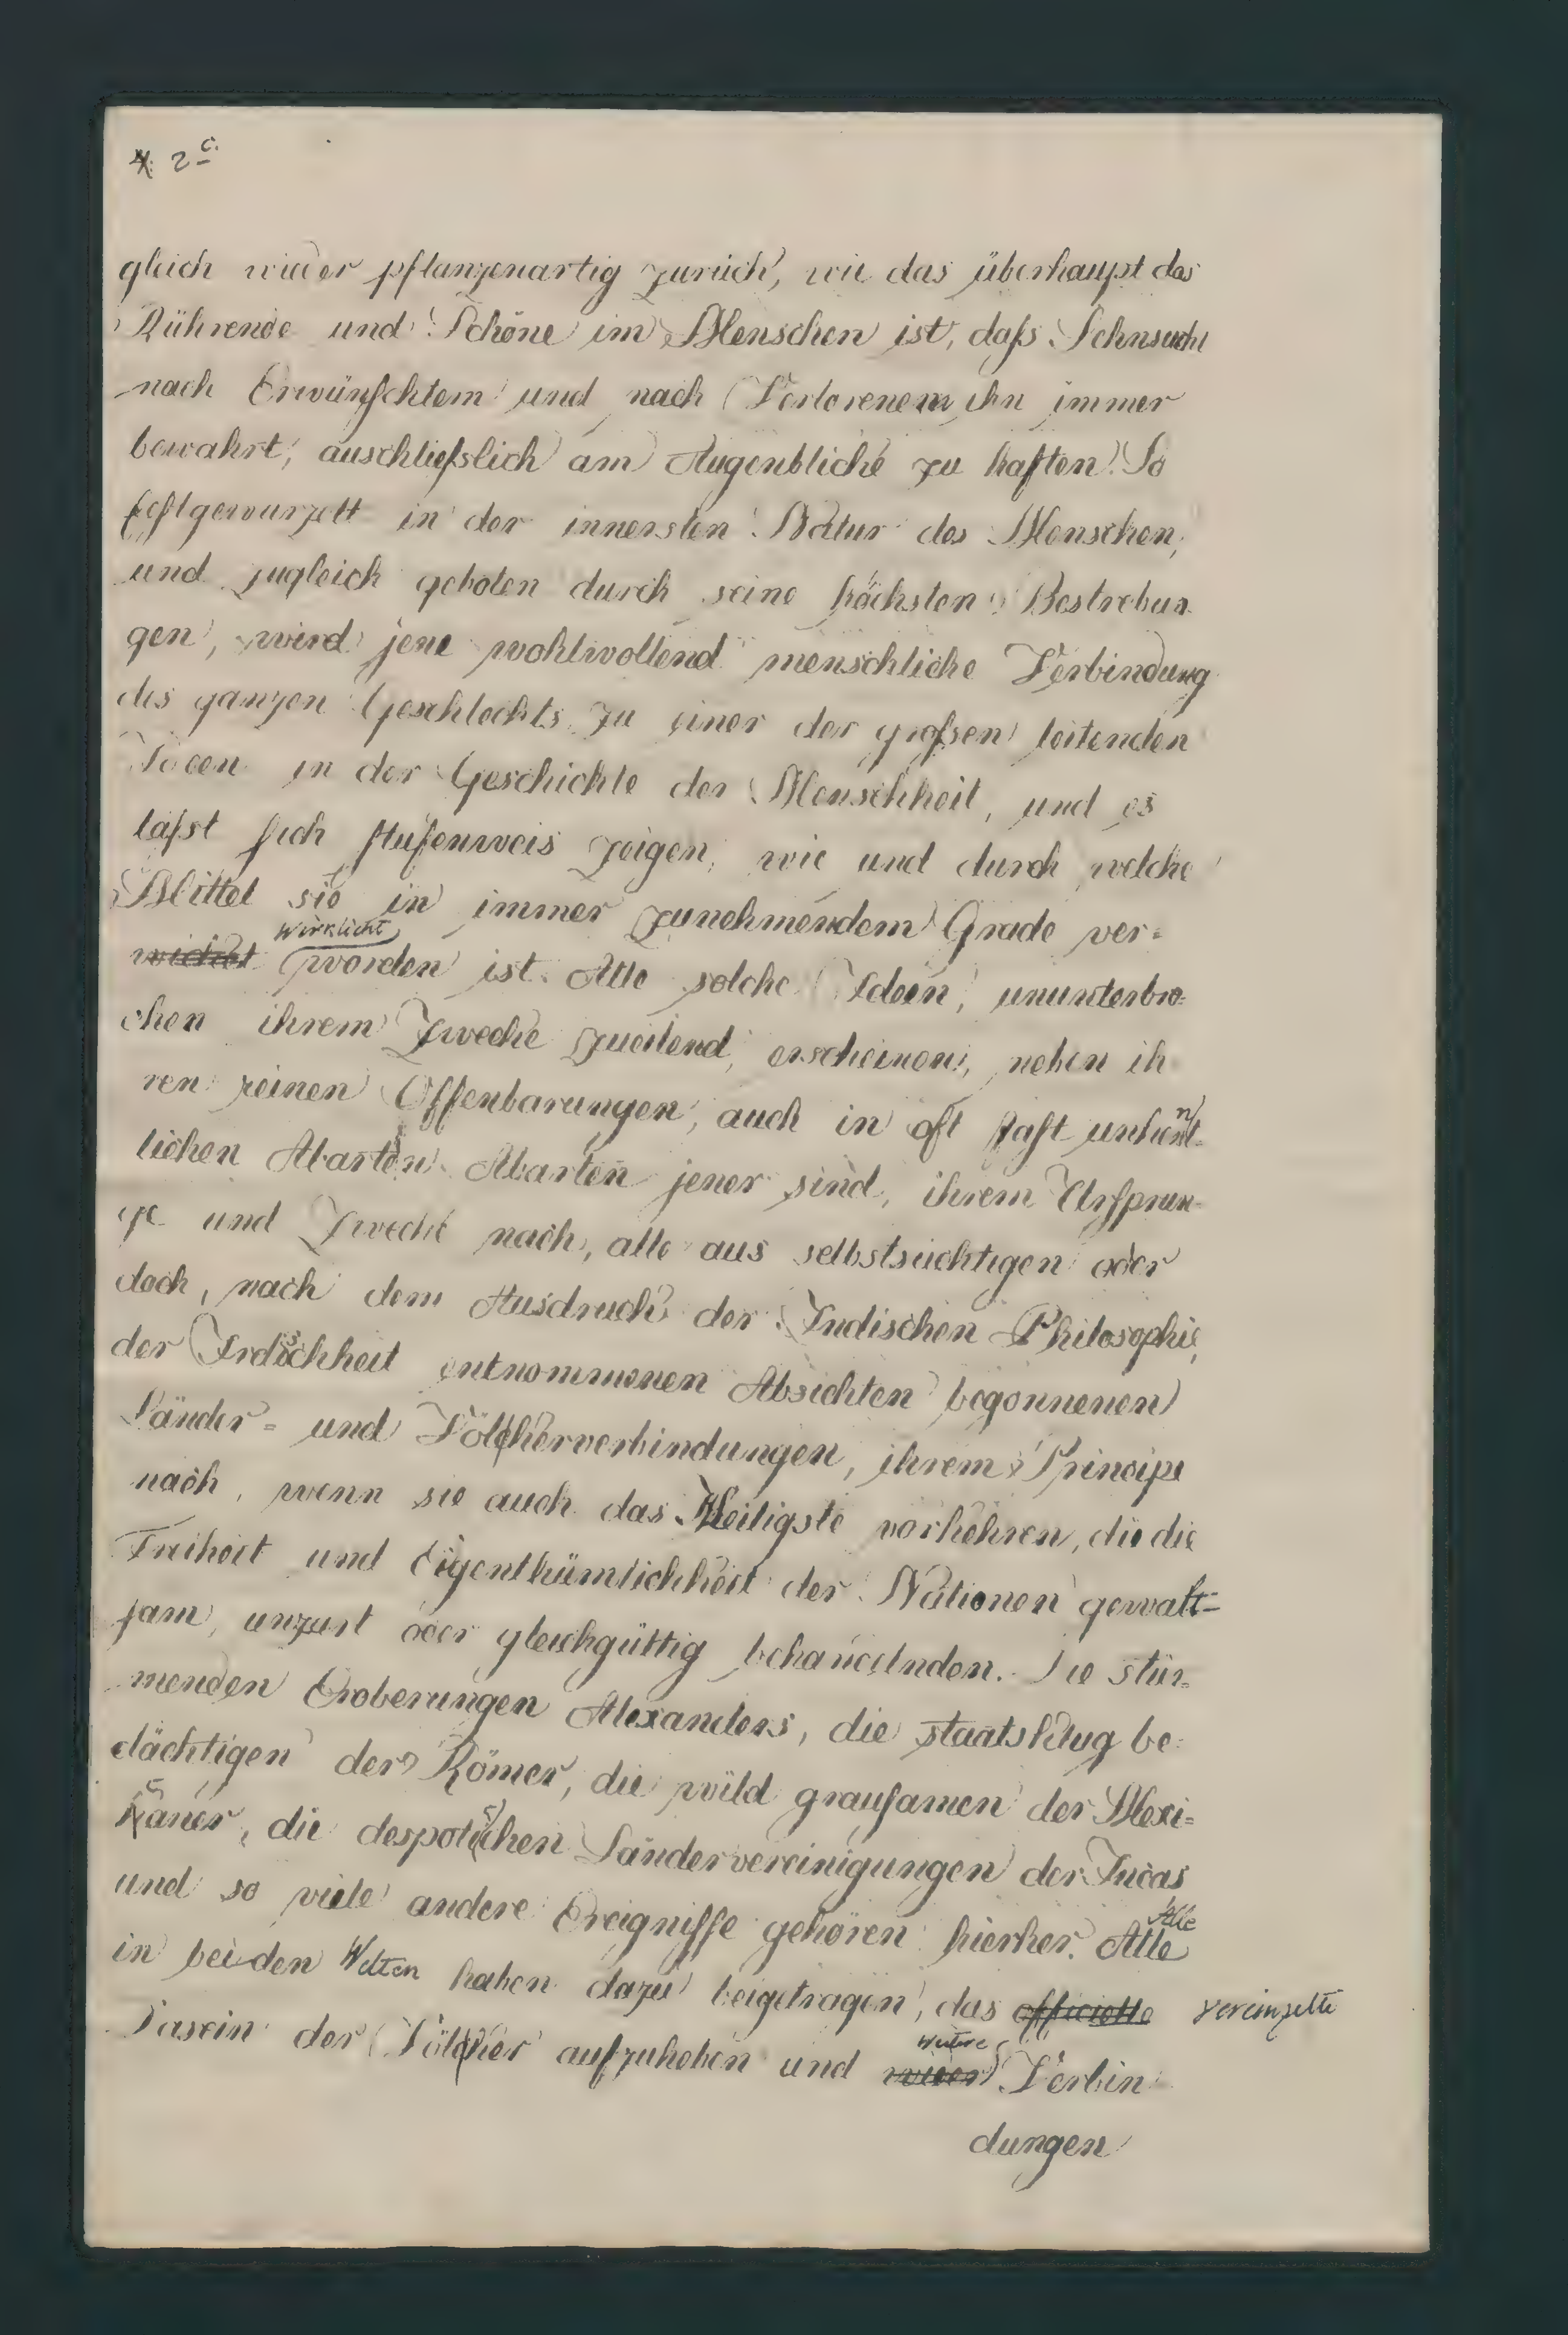 2c.
gleich wieder pflanzenartig zurück, wie das überhaupt das
Rührende und Schöne im Menschen ist, daſs Sehnsucht
nach Erwünschtem und nach Verlorenem ihn immer
bewahrt, auschlieſslich am Augenblicke zu haften. So
festgewurzelt in der innersten Natur des Menschen,
und zugleich geboten durch seine höchsten Bestrebun
gen, wird jene wohlwollend menschliche Verbindung
des ganzen Geschlechts zu einer der groſsen leitenden
Ideen in der Geschichte der Menschheit, und es
läſst sich stufenweis zeigen, wie und durch welche
Mittel sie in immer zunehmendem Grade ver=
wirklicht worden ist. Alle solche Ideen, ununterbro=
chen ihrem Zwecke zueilend, erscheinen, neben ih
ren reinen Offenbarungen, auch in oft fast unkennt-
lichen Abarten. Abarten jener sind, ihrem Urspun-
ge und Zwecke nach, alle aus selbstsüchtigen oder
doch, nach dem Ausdruck der Indischen Philosophie,
der Irdischheit entnommenen Absichten begonnenen
Länder= und Völkerverbindungen, ihrem Principe
nach, wenn sie auch das Heiligste vorkehren, die die
Freiheit und Eigenthümlichkeit der Nationen gewalt=
sam, unzart oder gleichgültig behandelnden. Die stür-
menden Eroberungen Alexanders, die staatsklug be-
dächtigen der Römer, die wild grausamen der Mexi=
caner, die despotischen Ländervereinigungen der Incas
und so viele andere Ereignisse gehören hierher. Alle
in beiden Welten haben dazu beigetragen, das officielle vereinzelte
Dasein der Völker aufzuheben und weitere Verbin
dungen